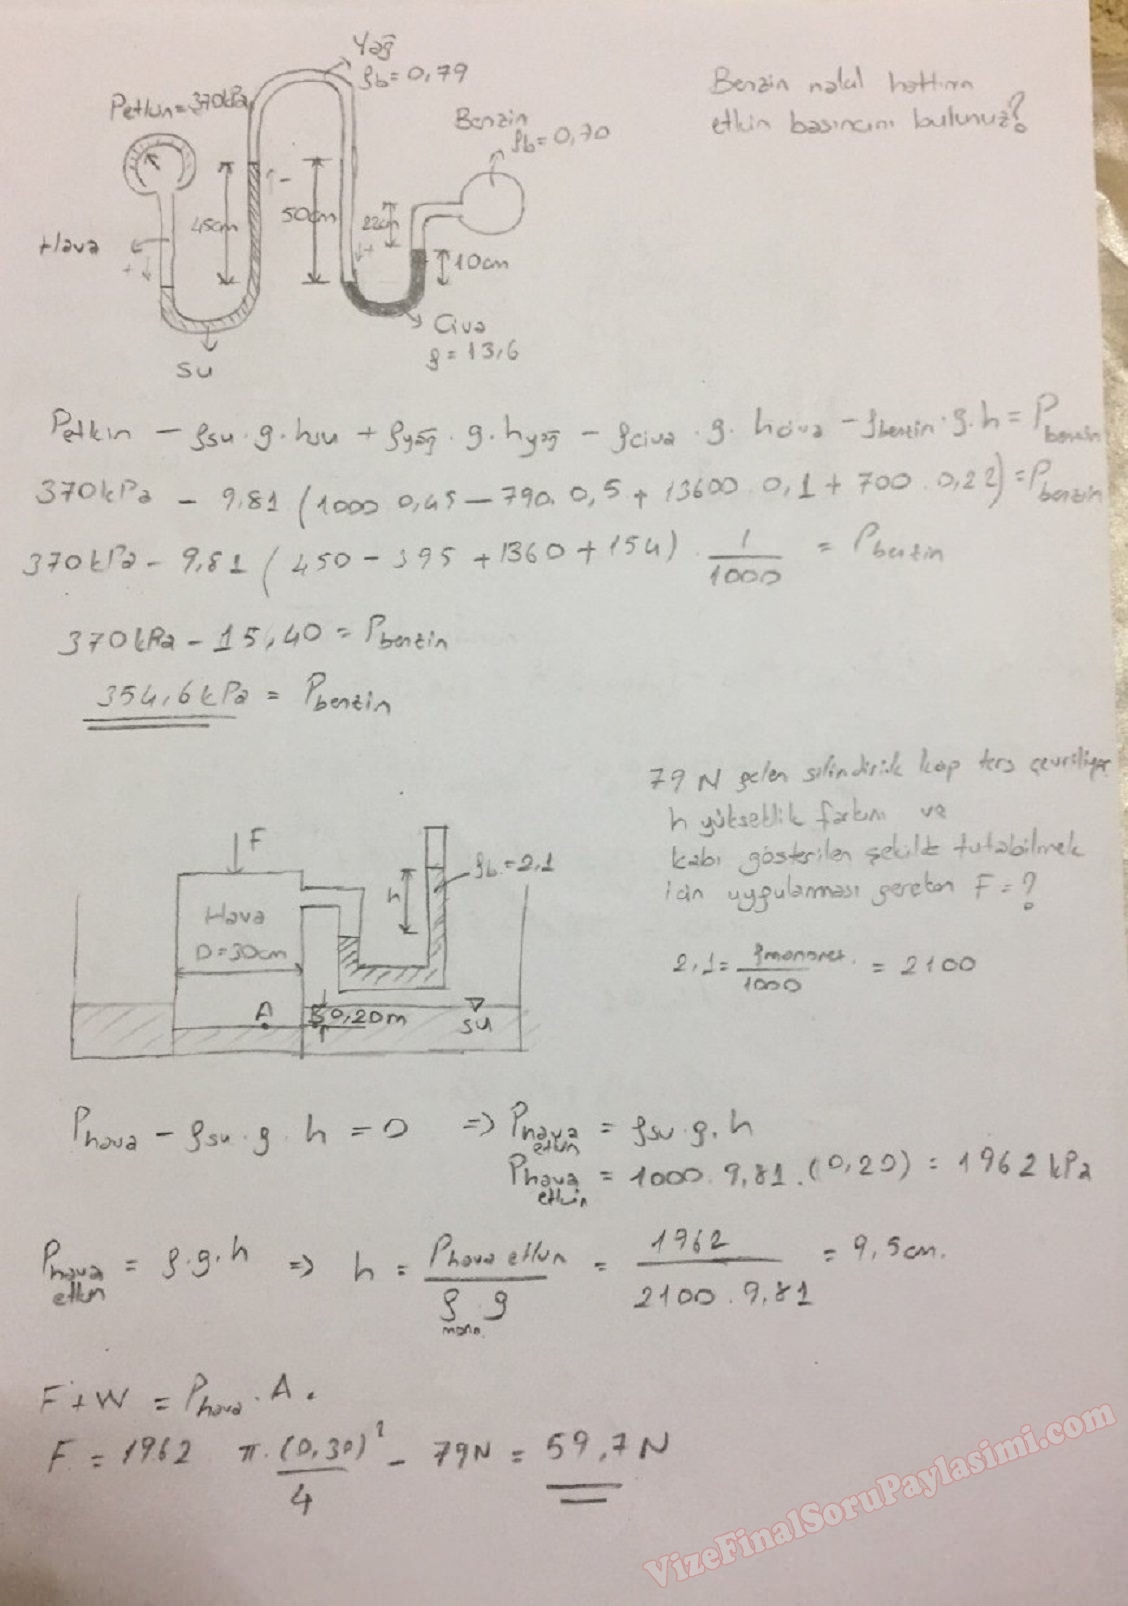 Yağ
ρb=0,79
Petkin=370kPa
Benzin
ρb=0,70
Benzin nakil hattının
etkin basıncını bulunuz?
45cm
50cm
22cm
10cm
Hava
+
-
+
Civa
ρ=13,6
su
Petkin - ρsu.g.hsu + ρyağ.g.hyağ - ρciva.g.hciva - ρbenzin.g.h = Pbenzin
370kPa - 9,81 (1000 0,45 - 790. 0,5 + 13600.0,1 + 700.0,22) = Pbenzin
370kPa - 9,81 (450 - 395 + 1360 + 154) . 1/1000 = Pbenzin
370kPa - 15,40 = Pbenzin
354,6kPa = Pbenzin
79 N gelen silindirik kap ters çevriliyor
h yükseklik farkını ve
kabı gösterilen şekilde tutabilmek
için uygulanması gereken F=?
2,1 = ρmanomet. / 1000 = 2100
F
ρb=2,1
h
Hava
D=30cm
A
0,20m
su
Phava - ρsu.g.h = 0 => Phava etkin = ρsu.g.h
Phava etkin = 1000. 9,81.(0,20) = 1962 kPa
Phava etkin = ρ.g.h => h = Phava etkin / ρmano. g = 1962 / 2100.9,81 = 9,5cm.
F+W = Phava.A.
F = 1962 π.(0,30)² / 4 - 79N = 59,7N
VizeFinalSoruPaylasimi.com